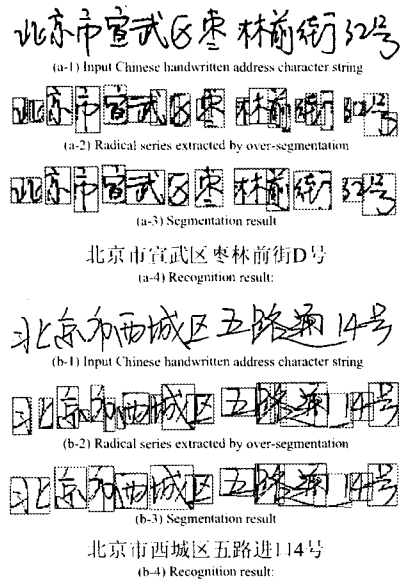 北京市宣武区枣林前街32号
(a-1) Input Chinese handwritten address character string
北京市宣武区枣林前街32号
(a-2) Radical series extracted by over-segmentation
北京市宣武区枣林前街32号
(a-3) Segmentation result
北京市宣武区枣林前街D号
(a-4) Recognition result:
北京市西城区五路通14号
(b-1) Input Chinese handwritten address character string
北京市西城区五路通14号
(b-2) Radical series extracted by over-segmentation
北京市西城区五路通14号
(b-3) Segmentation result
北京市西城区五路进114号
(b-4) Recognition result: